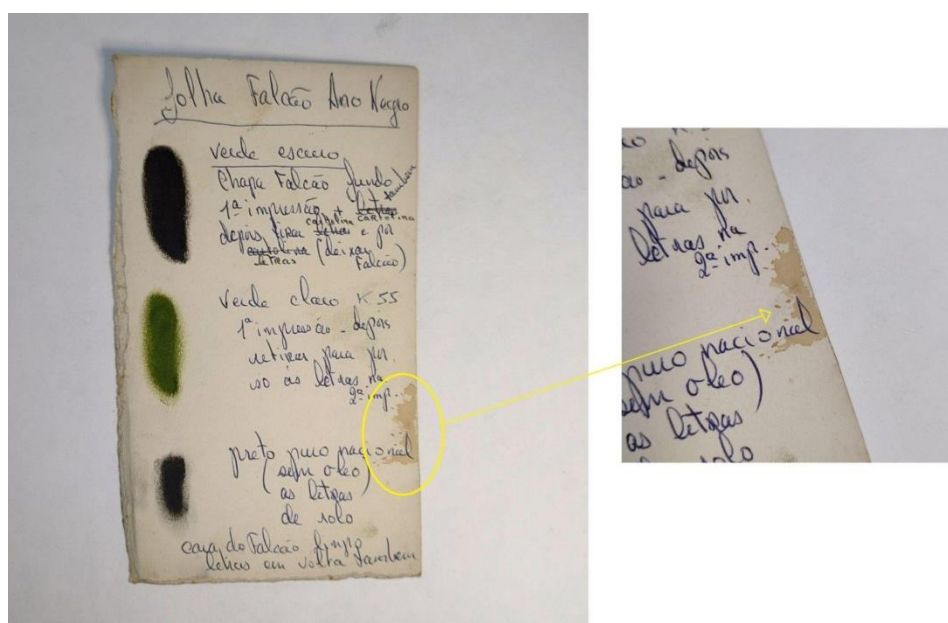 folha Falcão Ano Negro
verde escuro
Chapa Falcão fundo
também
1ª impressão + letras
cartolina cartolina
depois tirar e por
cartolina (deixar
letras Falcão)
verde claro K 55
1ª impressão - depois
retirar para por
só as letras na
2ª imp.
preto puro nacional
(sem oleo)
as letras
de rolo
cara do Falcão limpo
letras em volta também
ão - depois
para por
letras na
2ª imp.
puro nacional
sem oleo)
as letras
rolo